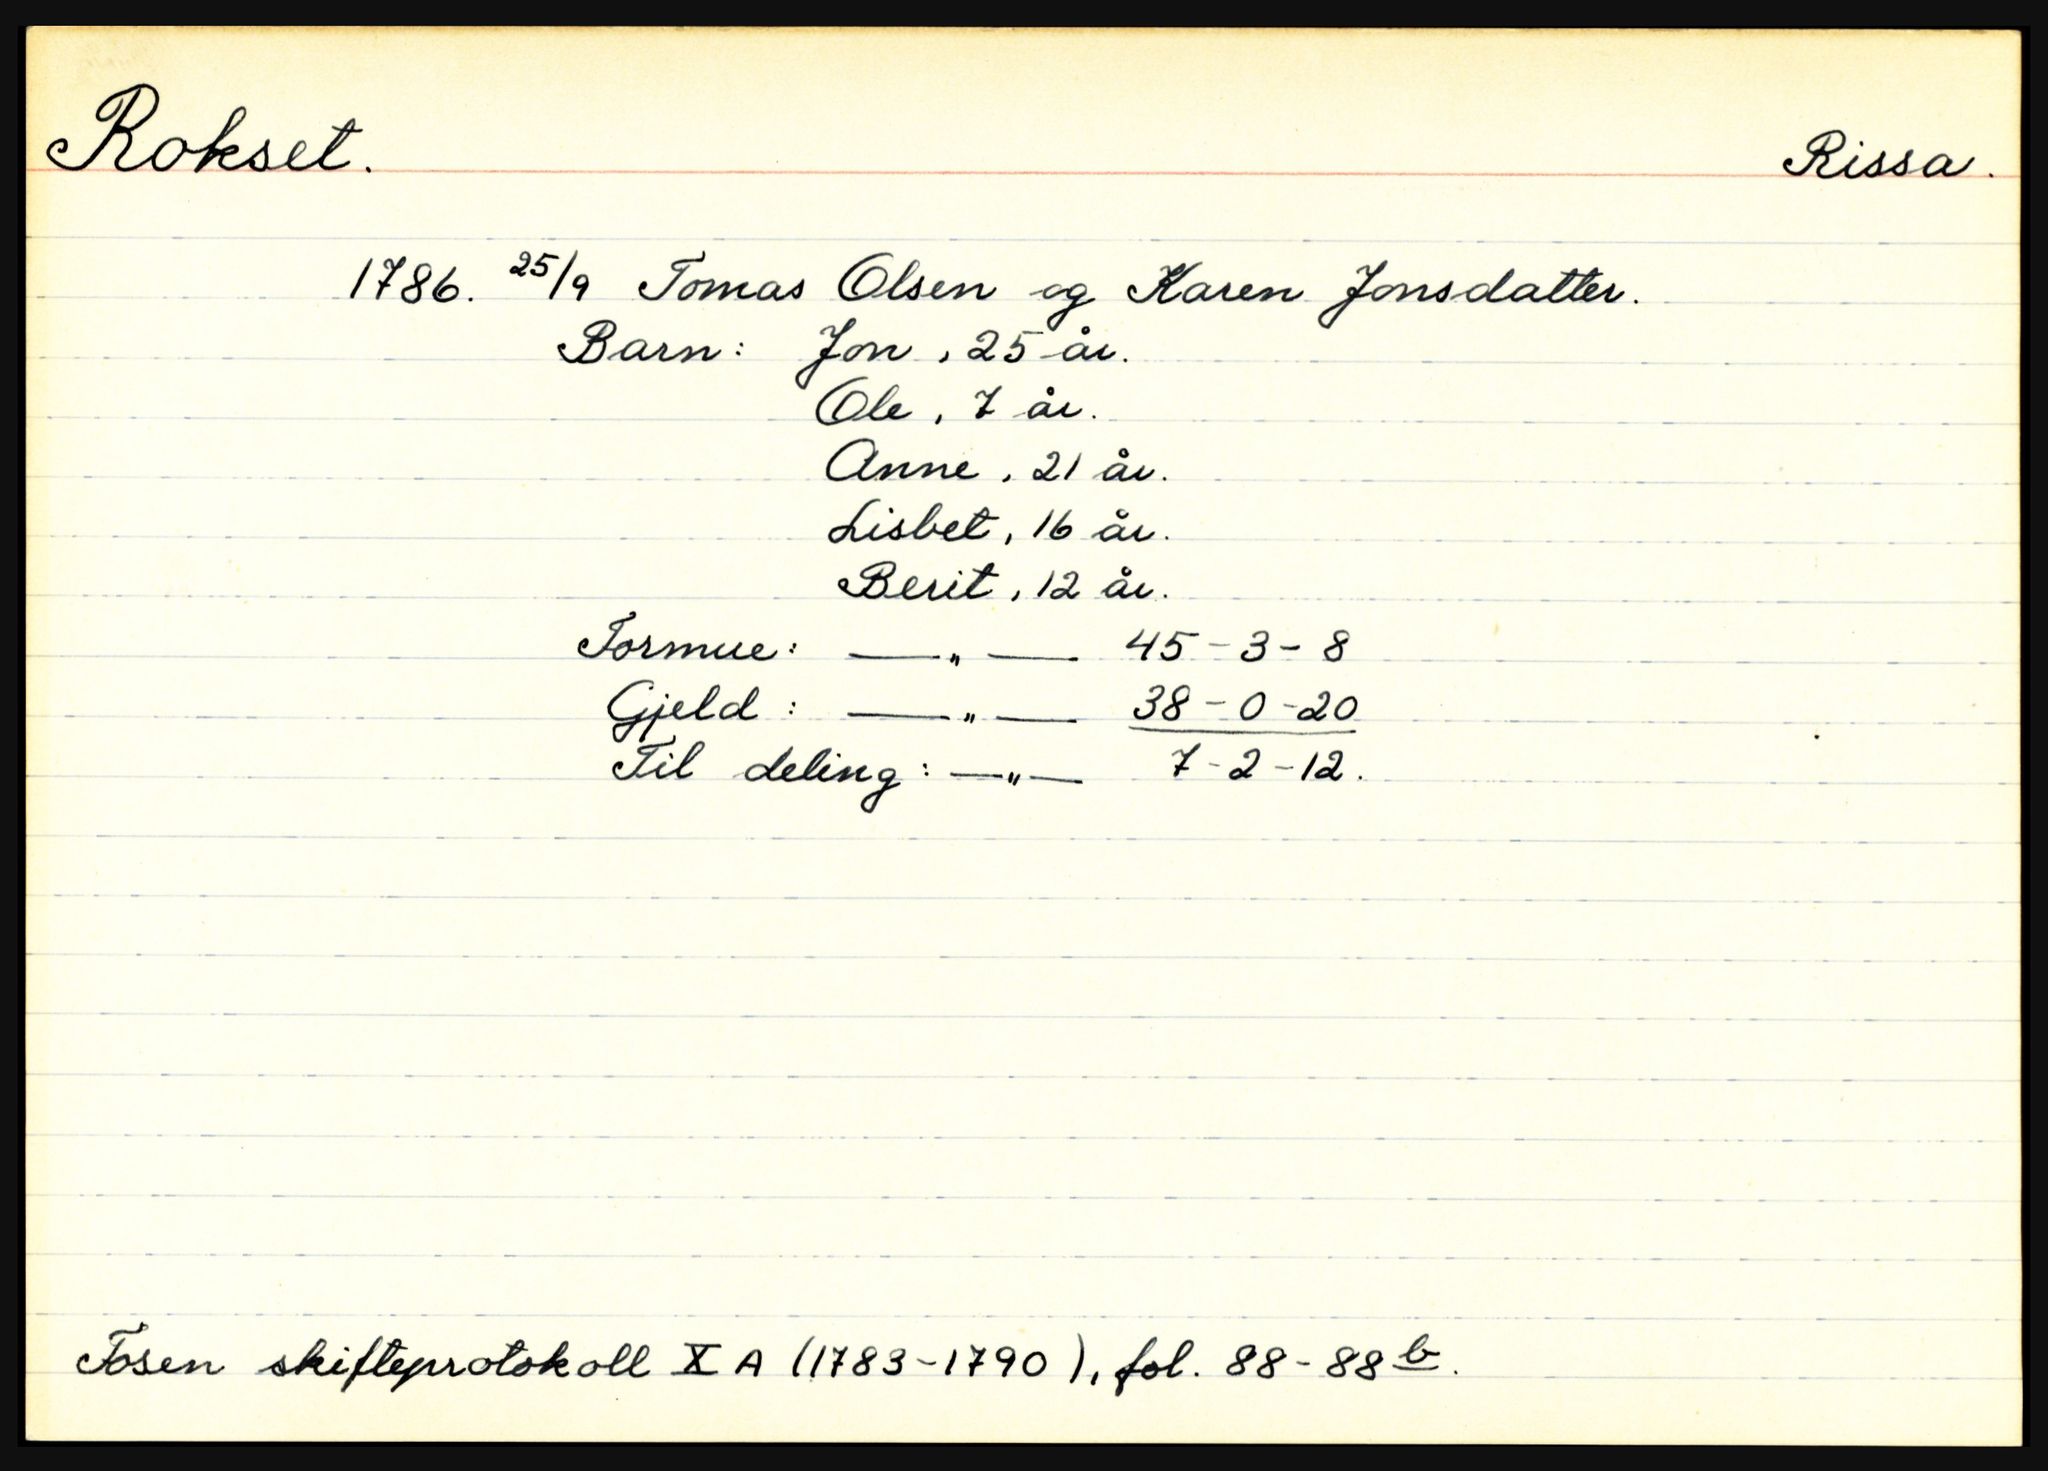 Rokset. Rissa.
1786. 25/9 Tomas Olsen og Karen Jonsdatter.
Barn: Jon, 25 år.
Ole, 7 år.
Anne, 21 år.
Lisbet, 16 år.
Berit, 12 år.
Formue: —„— 45-3-8
Gjeld: —„— 38-0-20
Til deling: —„— 7-2-12.
Fosen skifteprotokoll X A (1783-1790), fol. 88-88 b.